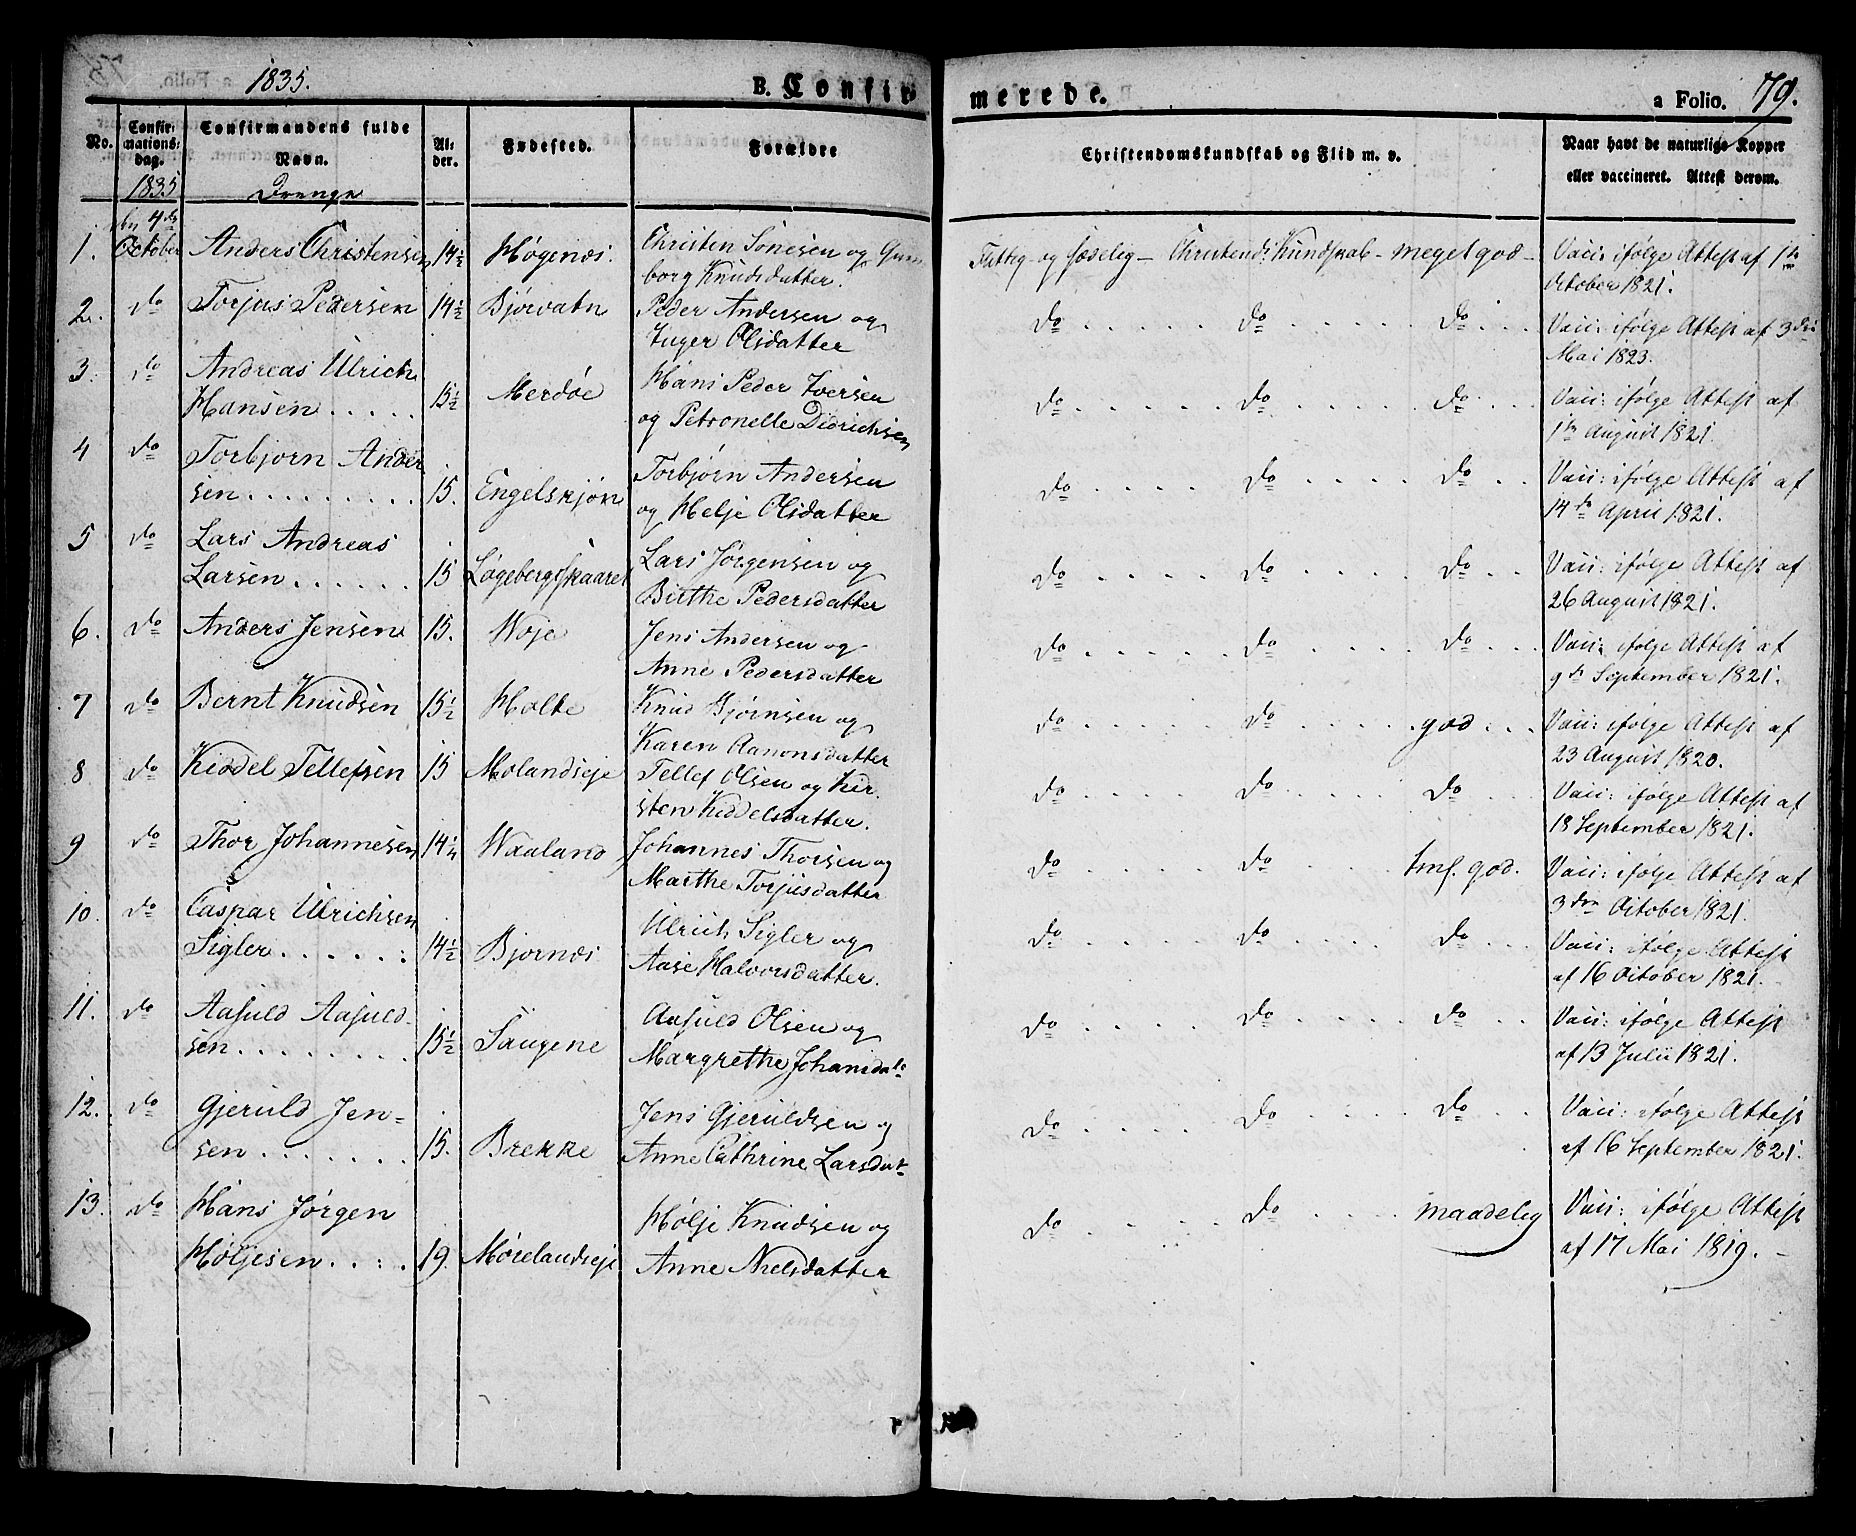 1835. B. Confir merede. a Folio. 79.
No. Confir- Confirmandens fulde Al- Fødested. Forældre Christendomskundskab og Flid m. v. Naar havt de naturlige Kopper
nations- Navn. der. eller vaccineret. Attest derom.
dag.
1835 Drenge
den 4de
1. October Anders Christensen 14½ Høgenæs. Christen Sonesen og Gun- Flittig og sædelig - Christend: Kundskab - meget god - Vacc: ifølge Attest af 1ste
borg Knudsdatter. October 1821.
2. do Torjus Pedersen 14½ Bjørvatn Peder Andersen og do do do Vacc: ifølge Attest af 3die
Inger Olsdatter Mai 1823.
3. do Andreas Ulrich Hans Peder Iversen
Hansen . . . . . 15½ Merdøe og Petronelle Didrichsen do do do Vacc: ifølge Attest af
1ste August 1821.
4 do Torbjørn Ander Torbjørn Andersen do do do Vacc: ifølge Attest af
sen . . . . . . . . . 15. Engelskjøn og Helje Olsdatter 14de April 1821.
5 do Lars Andreas Lars Jørgensen og do do do Vacc: ifølge Attest af
Larsen . . . . . . 15 Løgebergsskaaret Birthe Pedersdatter 26 August 1821.
6. do Anders Jensen 15. Woje Jens Andersen og do do do Vacc: ifølge Attest af
Anne Pedersdatter 9de September 1821.
7 do Bernt Knudsen 15½ Holte Knud Bjørnsen og do do god . . . Vacc: ifølge Attest af
Karen Aanonsdatter 23 August 1820.
8 do Kiddel Tellefsen 15 Molandseje Tellef Olsen og Kir- do do do Vacc: ifølge Attest af
sten Kiddelsdatter. 18 September 1821.
9 do Thor Johannesen 14¼ Waaland Johannes Thorsen og do do tml. god. Vacc: ifølge Attest af
Marthe Torjusdatter 3die October 1821.
10. do Caspar Ulrichsen Ulrich Sigler og do do do Vacc: ifølge Attest
Sigler . . . . . . 14½ Bjornæs Aase Halvorsdatter. af 16 October 1821.
11. do Aasuld Aasuld- Aasuld Olsen og do do do Vacc: ifølge Attest
sen . . . . . . . . 15½ Saugene Margrethe Johansdatr af 13 Julii 1821.
12. do Gjeruld Jen- Jens Gjeruldsen og do do do Vacc: ifølge Attest
sen . . . . . . . 15. Brekke Anne Cathrine Larsdatr af 16 September 1821.
13. do Hans Jørgen Hølje Knudsen og do do maadelig Vacc: ifølge Attest
Høljesen . . : . 19. Mørelandseje Anne Nielsdatter af 17 Mai 1819. -